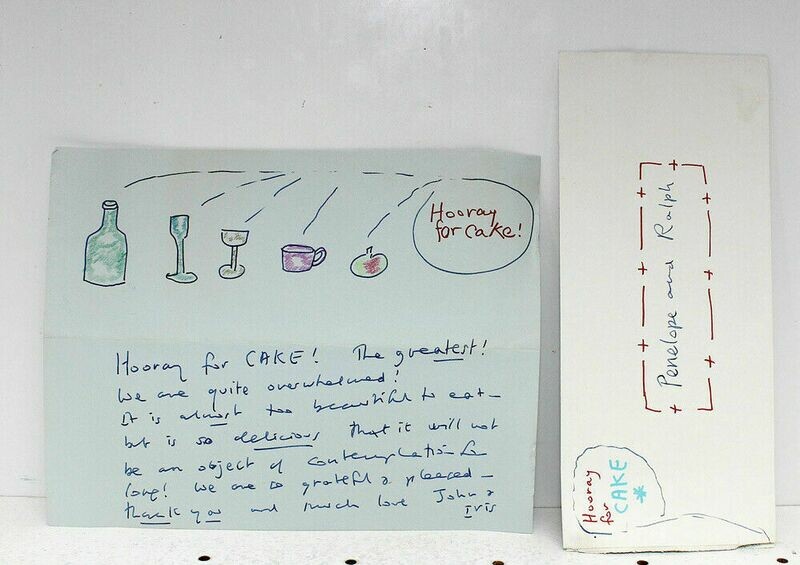 Hooray
for Cake!
Hooray for CAKE! The greatest!
We are quite overwhelmed!
It is almost too beautiful to eat –
but is so delicious that it will not
be an object of contemplation for
long! We are so grateful & pleased –
thank you and much love John &
Iris
Penelope and Ralph
Hooray
for
CAKE